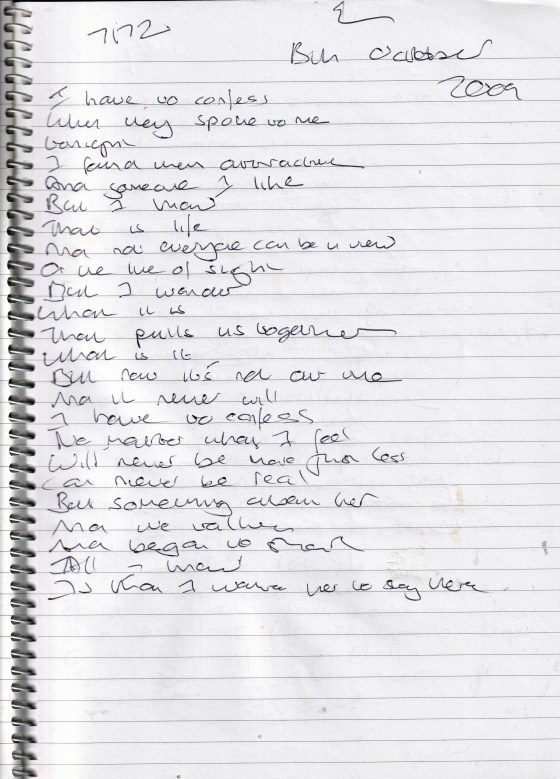 7172
8th October
2009
I have to confess
When they spoke to me
tonight
I found them attractive
And someone I like
But I know
That is life
And not everyone can be in view
Or the line of sight
But I wonder
What it is
That pulls us together
What is it
But now it's not our time
And it never will
I have to confess
No matter what I feel
Will never be more than less
Can never be real
But something about her
And we
And began to
All I know
Is that I want her to stay here